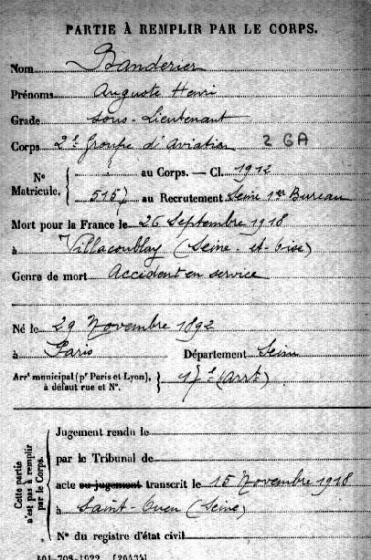 PARTIE À REMPLIR PAR LE CORPS.
Nom Banderier
Prénoms Auguste Henri
Grade sous-Lieutenant
Corps 2e Groupe d'Aviation 2 GA
N° Matricule. au Corps. — Cl. 1912
5157 au Recrutement Seine 1er Bureau
Mort pour la France le 26 Septembre 1918
à Villacoublay (Seine-et-Oise)
Genre de mort Accident en service
Né le 29 Novembre 1892
à Paris Département Seine
Arrt municipal (pr Paris et Lyon), à défaut rue et N°. 17e (Arrt)
Cette partie n'est pas à remplir par le Corps.
Jugement rendu le
par le Tribunal de
acte ou jugement transcrit le 15 Novembre 1918
à Saint-Ouen (Seine)
N° du registre d'état civil